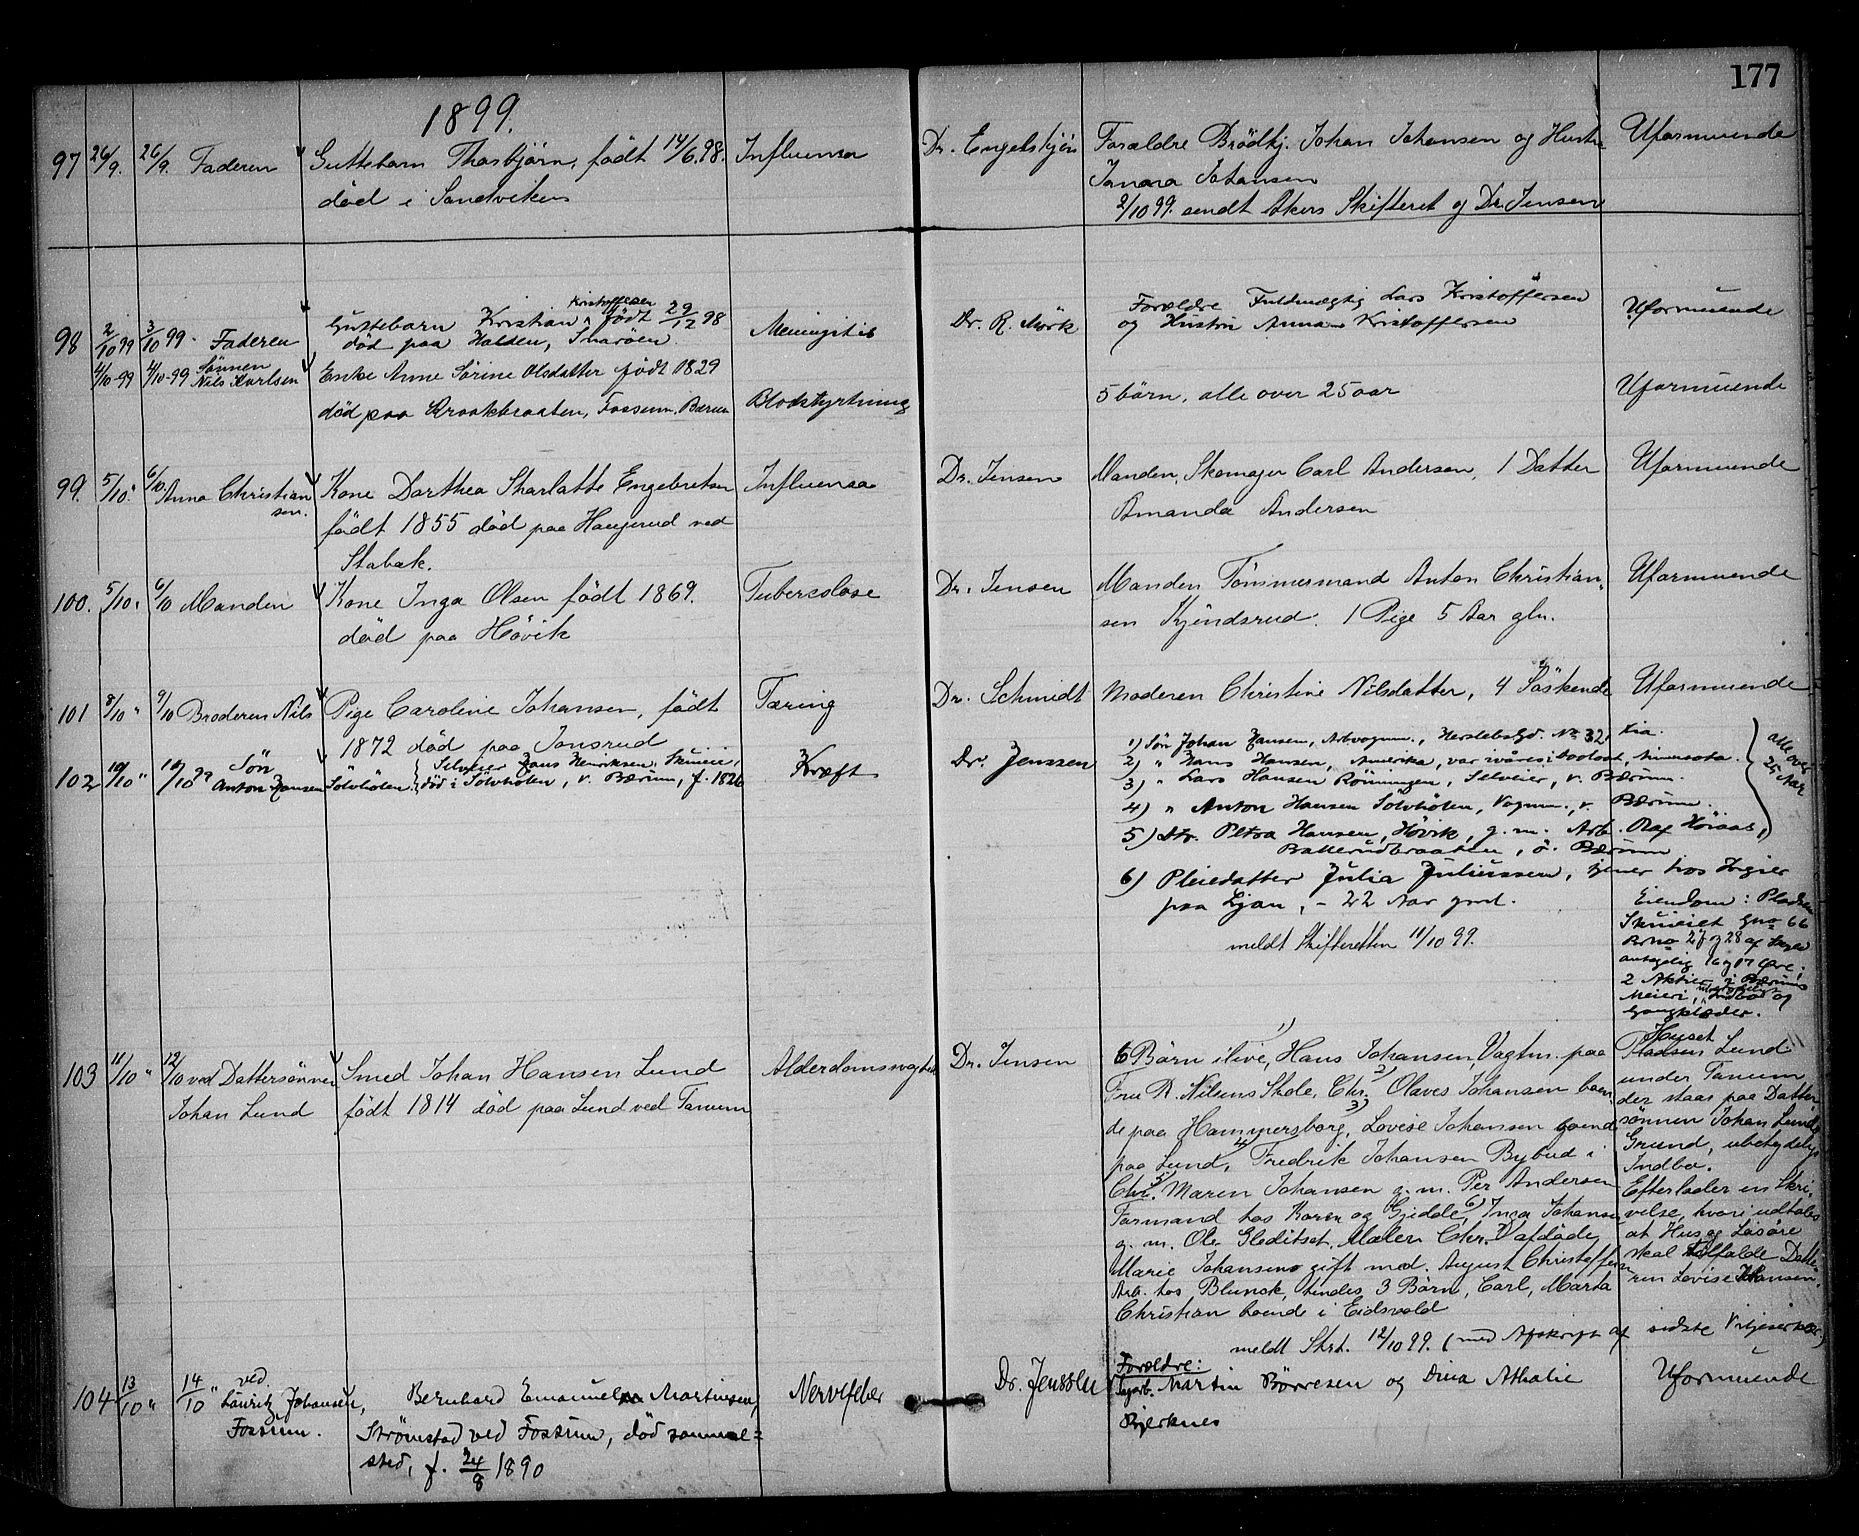 177
1899.
97 26/9. 26/9. Faderen Guttebarn Thorbjørn, født 14/6.98. Influensa Dr. Engelskjøn Forældre Brödkj. Johan Johansen og Hustru Uformuende
død i Sandviken Johansen
2/10 99. sendt Akers Skifteret og Dr. Jensen
98 2/10 99 3/10 99 Faderen Guttebarn Kristian Kristoffersen født 29/12 98 Meningitis Dr. R. Mørk Forældre Fuldmægtig Lars Kristoffersen Uformuende
død paa Halden, Snarøen. og Hustru Anna Kristoffersen
4/10-99 4/10-99 Sønnen Nils Karlsen Enke Anne Sørine Olsdatter født 1829
død paa Kraakbraaten, Fossum, Bærum Blodstyrtning 5 børn, alle over 25 aar Uformuende
99. 5/10." 6/10. Anna Christian Kone Dorthea Sharlotte Engebretsen Influensa Dr. Jensen Manden, Skomager Carl Andersen, 1 Datter Uformuende
sen. født 1855 død paa Haugerud ved Amanda Andersen
Stabæk.
100. 5/10" 6/10 Manden Kone Inga Olsen født 1869. Tuberculose Dr. Jensen Manden Tømmermand Anton Christian- Uformuende
død paa Høvik sen Kjendsrud. 1 Pige 5 Aar glm.
101 8/10 " 9/10 Broderen Nils Pige Caroline Johansen, født Tæring Dr. Schmidt Moderen Christine Nilsdatter, 4 Søskende Uformuende
1872 død paa Jonsrud
102 10/10 " 10/10 99 Søn Anton Hansen Sølvhølen. Selveier Hans Henriksen Skuieie, død i Sølvhølen, v. Bærum, f. 1826 Kræft Dr. Jenssen
1) Søn Johan Hansen, Arbvognm., Herslebsgd. No 32, Kria.
2) " Hans Hansen, Amerika, var ivåres i Minnesota.
3) " Lars Hansen Rønningen, Selveier, v. Bærum.
4) " Anton Hansen Sølvhølen, Vognm., v. Bærum.
5) Dtr. Petra Hansen, Høvik, g. m. Arb. Olaf Høiaas,
Ballerudbraaten, ö. Bærum
alle over 25 Aar
6) Pleiedatter Julia Juliussen, tjener hos
paa Ljan, - 22 Aar gml.
meldt Skifteretten 11/10 99.
Eiendom: Pladsen
Skuieiet Gno 66
Brno 27 og 28 af Skyld
antagelig 16 og 17 Øre;
2 Aktier i Bærums
Meieri, ubetydeligt Indbo og
Gangklæder.
103 11/10 " 12/10 ved Dattersønnen Smed Johan Hansen Lund Alderdomssvaghed Dr. Jensen 6 Børn ilive, 1) Hans Johansen, Vagtm. paa
Johan Lund født 1814 død paa Lund ved Tanum Fru R. Nilsens Skole, Chr. 2) Olaves Johansen boen
de paa Hammersborg, 3) Lovise Johansen boende
paa Lund, 4) Fredrik Johansen Bybud i
Chr. 5) Maren Johansen g. m. Per Andersen
Formand hos Koren og Gjedde, 6) Inga Johansen
g. m. Ole Gleditset, Maler Chr. Døfdøde
Marie Johansen gift med. August Christoffersen
Arb. hos Blunck, hendes 3 Børn, Carl, Marta
Christian boende i Eidsvold
meldt Skrt. 12/10 99. (med Afskrift af sidste Viljeserkl.)
Huset
Pladsen Lund
under Tanum
der staar paa Datter
sønnen Johan Lunds
Grund, ubetydelig
Indbo.
Efterlader en Skri-
velse, hvori udtales
at Hus og Løsøre
skal tilfalde Datte-
ren Lovise Johansen.
104 13/10 " 14/10 " ved Lauritz Johansen, Bernhard Emanuel Martinsen, Nervefeber Dr. Jenssen Forældre: Martin Børresen og Dina Athalie Uformuende
Fossum. Strømstad ved Fossum, død samme- Bjerknes
sted, f. 24/8 1890